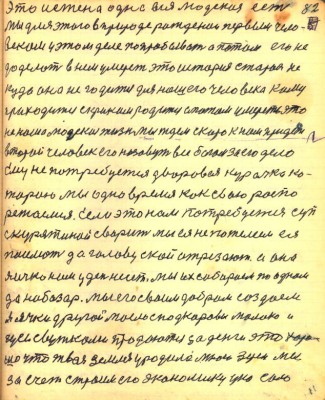 это истена одна вся людская есть 82
мы для этого в природе рождении первым чело-
веком у этом деле попробывать а потом его не
доделот в нем умереть это история старая не
куда она не годится для нашего человека кому
приходится скриком родится стоном умереть это
не наша людская жизнь мы ждем скоро к нам придет
второй человек его назовут все Богом за его дело
Ему не потребуется дворовая курачка ко-
тораю мы одно время как свою роста
ретаемся. Если это нам потребуется суп
скурятиной сварить мы ся не пожелеем ея
поймают да голову ской отрезают а она
яичко нам у ден несет. мы их собираем по одном
да на базар. мы его своим добром создаем
а яички другой масло сподкоровы молоко и
гуси с утками продаются за деньги это хоро-
шо что твая земля уродила маю гуси мы
за счет строим его экономику у но свою